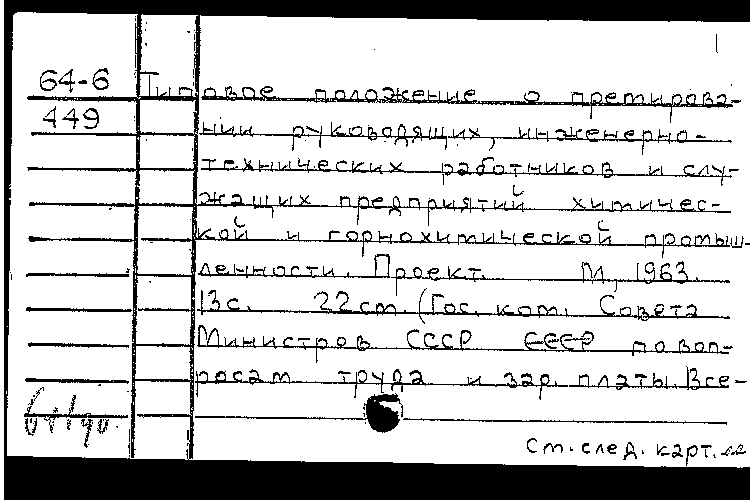 64-6 Типовое положение о премирова-
449 нии руководящих, инженерно-
технических работников и слу-
жащих предприятий химичес-
кой и горнохимической промыш-
ленности. Проект. М., 1963.
13с. 22см. (Гос. ком. Совета
Министров СССР СССР по воп-
росам труда и зар. платы. Все-
См. след. карт.